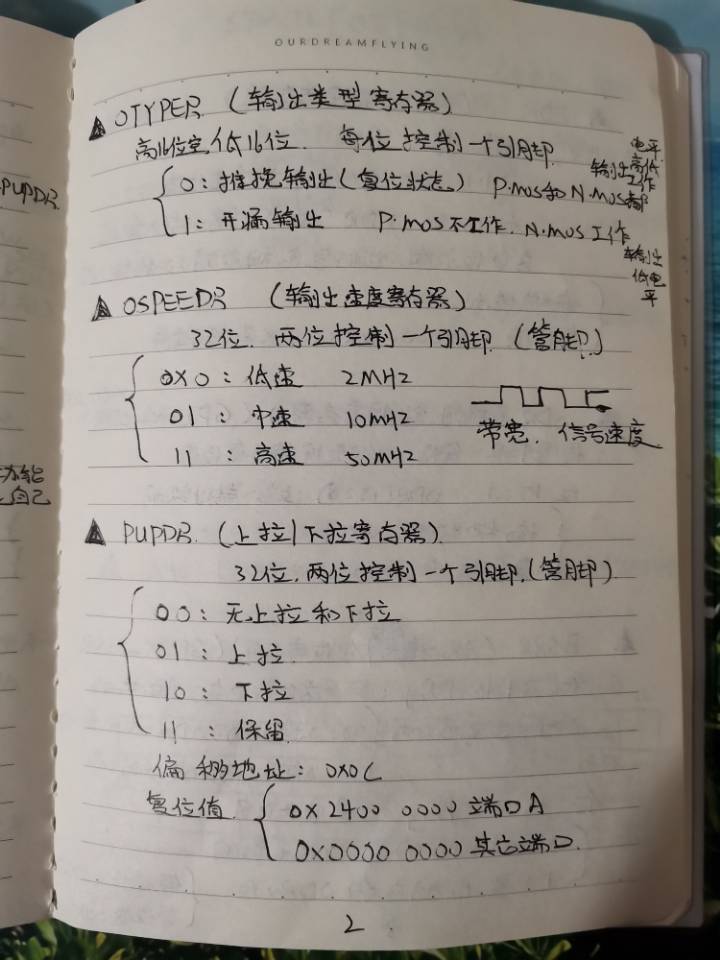 OURDREAMFLYING
OTYPER （输出类型寄存器）
高16位空 低16位. 每位控制一个引脚.
0：推挽输出（复位状态） P·MOS和N·MOS都
工作
输出高低
电平
1：开漏输出 P·MOS不工作. N·MOS工作
输出
低电
平
OSPEEDR （输出速度寄存器）
32位. 两位控制一个引脚.（管脚）
0X0：低速 2MHz
01：中速 10MHz
11：高速 50MHz
带宽. 信号速度
PUPDR.（上拉/下拉寄存器）
32位. 两位控制一个引脚.（管脚）
00：无上拉和下拉
01：上拉.
10：下拉
11：保留.
偏移地址：0X0C
复位值
0X2400 0000 端口A
0X0000 0000 其它端口.
2
PUPDR
功能
自己